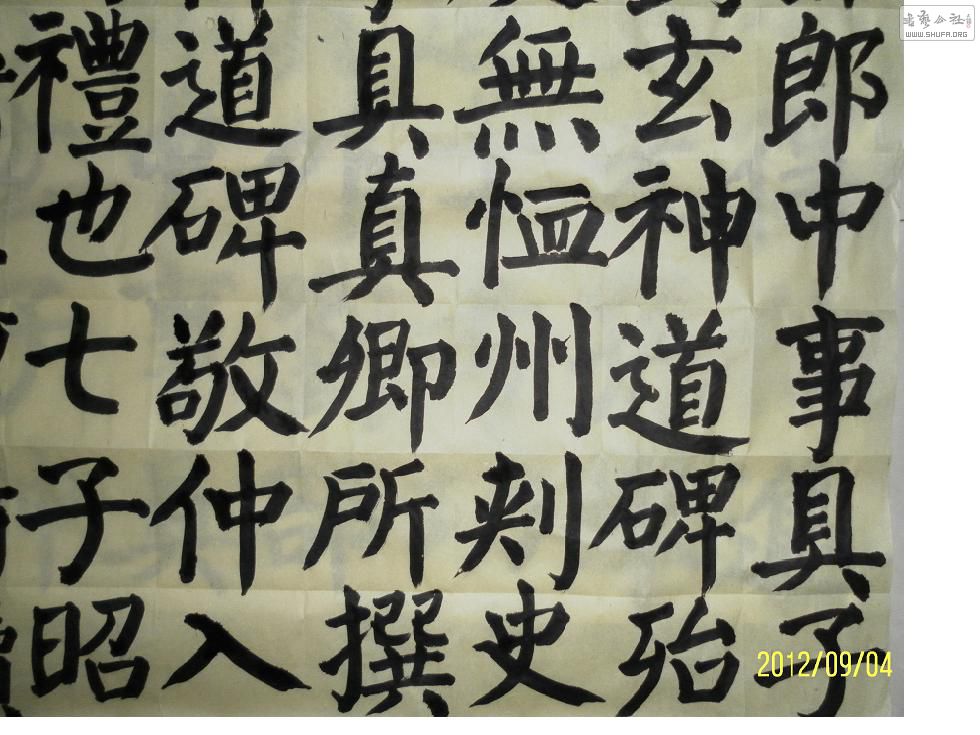 郎中事具子
玄神道碑殆
無恤州刾史
具真卿所撰
道碑敬仲入
禮也七子昭
2012/09/04
WWW.SHUFA.ORG